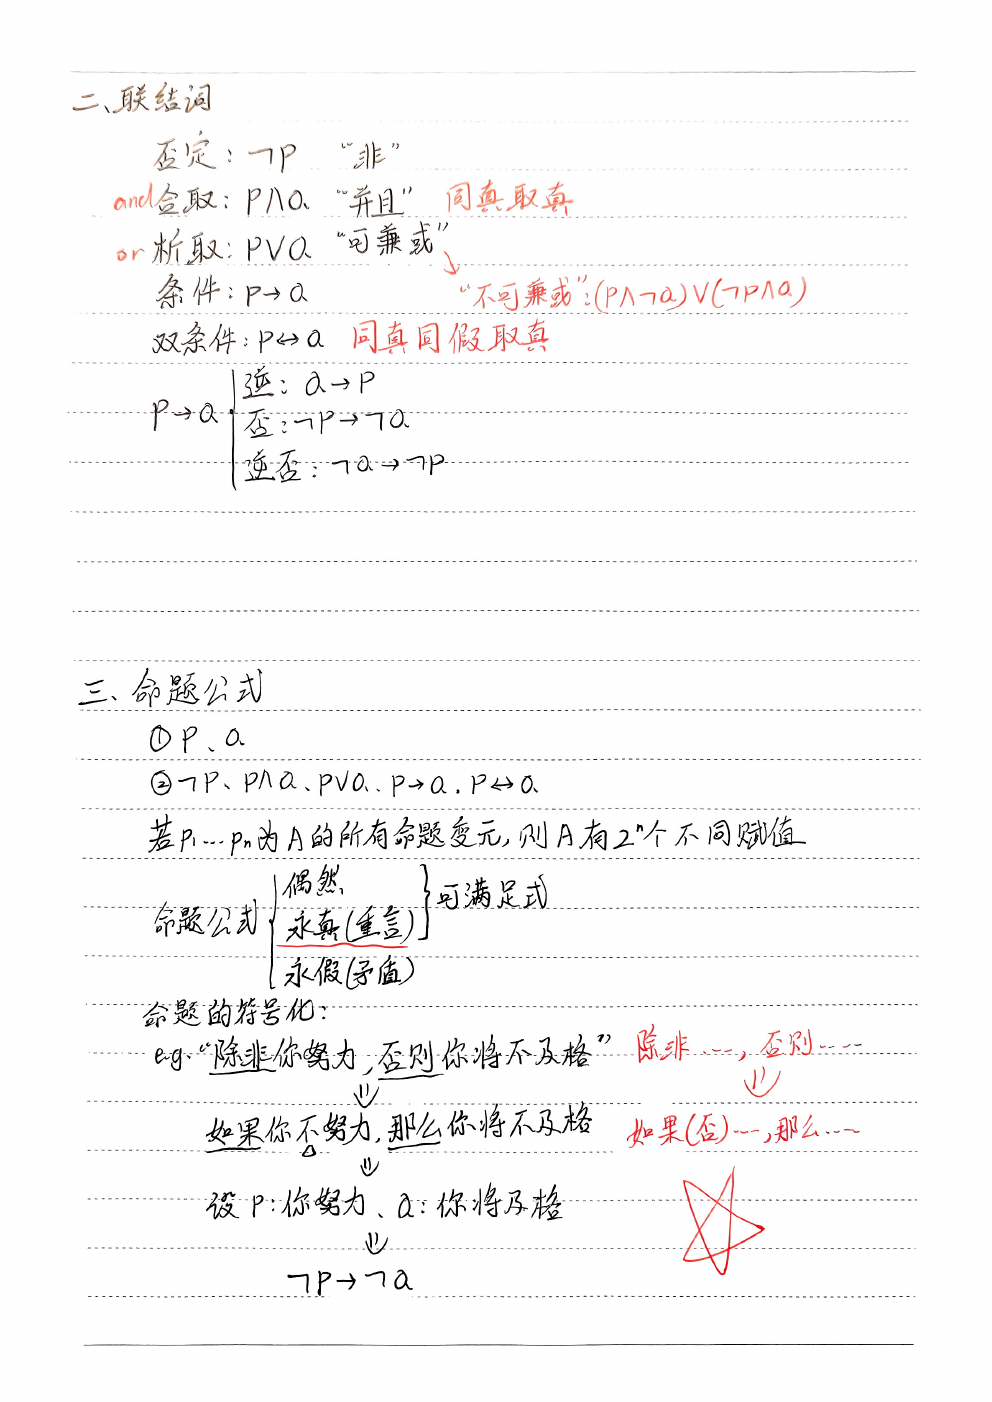 二、联结词
否定：¬P “非”
and 合取：P∧Q “并且” 同真取真
or 析取：P∨Q “可兼或”
条件：P→Q “不可兼或”：(P∧¬Q)∨(¬P∧Q)
双条件：P↔Q 同真同假取真
逆：Q→P
P→Q
否：¬P→¬Q
逆否：¬Q→¬P
三、命题公式
①P、Q
②¬P、P∧Q、P∨Q、P→Q、P↔Q
若P₁…Pₙ为A的所有命题变元，则A有2ⁿ个不同赋值
偶然 可满足式
命题公式 永真(重言)
永假(矛盾)
命题的符号化：
e.g.“除非你努力，否则你将不及格” 除非……，否则……
如果你不努力，那么你将不及格 如果(否)……，那么……
设P：你努力、Q：你将及格
¬P→¬Q